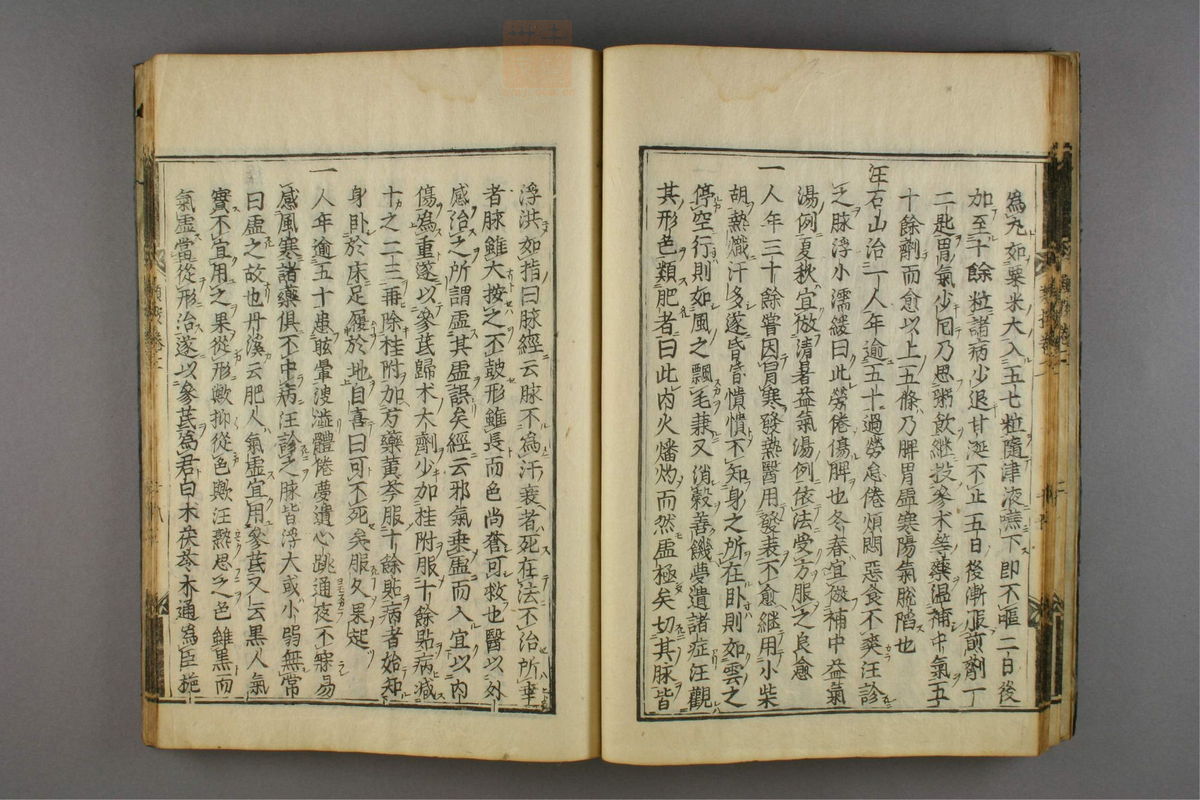 為丸如粟米大入五七粒隨津液嚥下即不嘔二日後
加至十餘粒諸病少退甘涎不止五日後漸服前劑一
二匙胃氣少回乃思粥飲繼投參朮等藥溫補中氣五
十餘劑而愈以上五條乃脾胃虛寒陽氣脫陷也
汪石山治一人年逾五十過勞怠倦煩悶惡食不爽汪診
之脉浮小濡緩曰此勞倦傷脾也冬春宜倣補中益氣
湯例夏秋宜倣清暑益氣湯例依法受方服之良愈
一人年三十餘嘗因冐寒發熱醫用發表不愈繼用小柴
胡熱熾汗多遂昏昏憒憒不知身之所在卧則如雲之
停空行則如風之飄毛兼又消穀善饑夢遺諸症汪觀
其形色類肥者曰此内火燔灼而然虛極矣切其脉皆
浮洪如指曰脉經云脉不為汗衰者死在法不治所幸
者脉雖大按之不鼓形雖長而色尚蒼可救也醫以外
感治之所謂虛其虛誤矣經云邪氣乗虛而入宜以内
傷為重遂以參芪歸朮大劑少加桂附服十餘貼病減
十之二三再除桂附加芍藥黄芩服十餘貼病者始知
身卧於床足履於地自喜曰可不死矣服久果起
一人年逾五十患眩暈溲澁體倦夢遺心跳通夜不寐易
感風寒諸藥俱不中病汪診之脉皆浮大或小弱無常
曰虛之故也丹溪云肥人氣虛宜用參芪又云黒人氣
實不宜用之果從形歟抑從色歟汪熟思之色雖黒而
氣虛當從形治遂以參芪為君白朮茯苓木通為臣梔